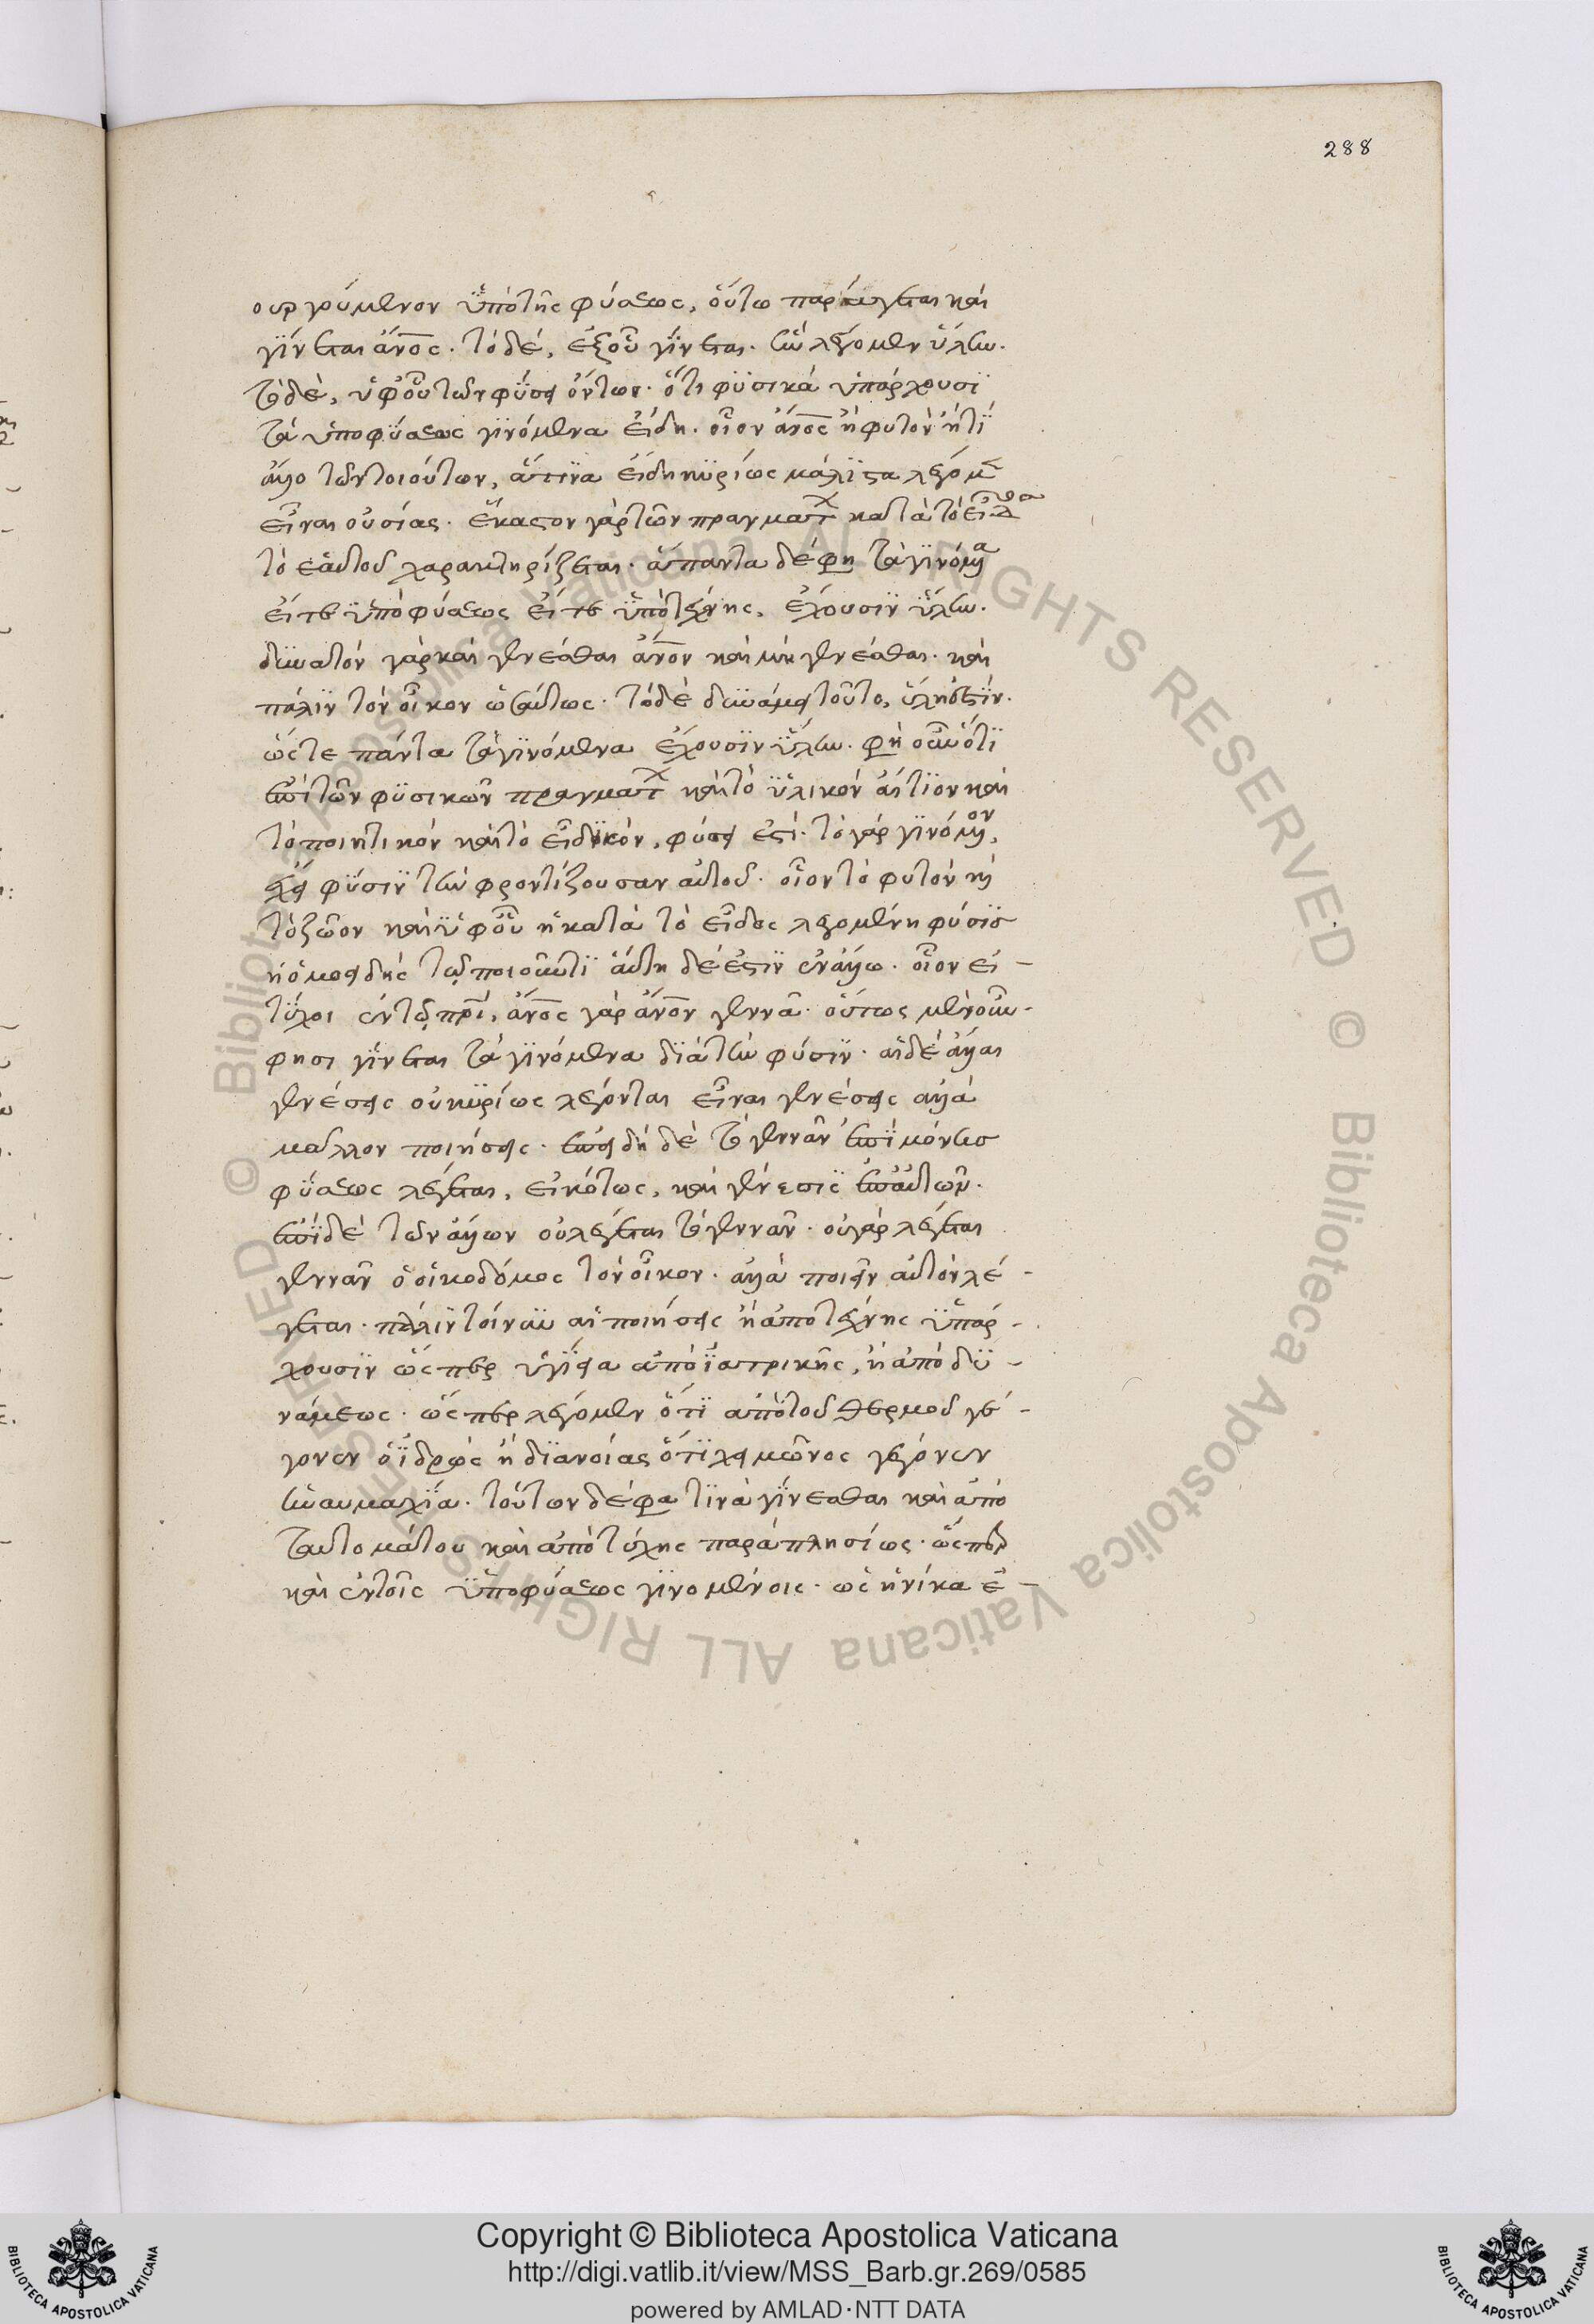 288
ουργούμενον ὑπὸ τῆς φύσεως, οὕτω παράγεται καὶ
γίνεται ἄνος. τὸ δέ, ἐξ οὗ γίνεται. ἣν λέγομεν ὕλην.
τὸ δὲ, ὑφ' οὗ τῶν φύσει ὄντων. ὅτι φυσικὰ ὑπάρχουσι
τὰ ὑπὸ φύσεως γινόμενα εἴδη. οἷον ἄνος ἢ φυτὸν ἤ τι
ἄλλο τῶν τοιούτων, ἅτινα εἴδη κυρίως μάλιστα λέγομ
εἶναι οὐσίας. ἕκαστον γὰρ τῶν πραγματ κατὰ τὸ εἶδ
τὸ ἑαυτοῦ χαρακτηρίζεται. ἅπαντα δέ φη τὰ γινόμα
εἴτε ὑπὸ φύσεως εἴτε ὑπὸ τέχνης, ἔχουσιν ὕλην.
δυνατὸν γὰρ καὶ γενέσθαι ἄνον καὶ μὴ γενέσθαι. καὶ
πάλιν τὸν οἶκον ὡσαύτως. τὸ δὲ δυνάμει τοῦτο, ὕλη ἐστίν.
ὥστε πάντα τὰ γινόμενα ἔχουσιν ὕλην. φη οὖν ὅτι
ἐπὶ τῶν φυσικῶν πραγματ καὶ τὸ ὑλικὸν αἴτιον καὶ
τὸ ποιητικὸν καὶ τὸ εἰδικὸν, φύσει ἐστί. τὸ γὰρ γινόμον,
ἔχει φύσιν τὴν φροντίζουσαν αὐτοῦ. οἷον τὸ φυτὸν ἢ
τὸ ζῶον καὶ ὑφ' οὗ ἡ κατὰ τὸ εἶδος λεγομένη φύσις
ἡ ὁμοειδής τῷ ποιοῦντι αὕτη δέ ἐστιν ἐν ἄλλω. οἷον εἰ-
τύχοι ἐν τῷ πρί. ἄνος γὰρ ἄνον γεννᾶ. οὕτως μὲν οὖν-
φησι γίνεται τὰ γινόμενα διὰ τὴν φύσιν. αἱ δὲ ἄλλαι
γενέσεις οὐ κυρίως λέγονται εἶναι γενέσεις ἀλλὰ
μᾶλλον ποιήσεις. ἐπειδὴ δὲ τὸ γεννᾶν ἐπὶ μόνης
φύσεως λέγεται, εἰκότως, καὶ γένεσις ἐπ' αὐτῶν.
ἐπὶ δὲ τῶν ἄλλων οὐ λέγεται τὸ γεννᾶν. οὐ γὰρ λέγεται
γεννᾶν ὁ οἰκοδόμος τὸν οἶκον. ἀλλὰ ποιεῖν αὐτὸν λέ-
γεται. πάλιν τοίνυν αἱ ποιήσεις ἢ ἀπὸ τέχνης ὑπάρ-
χουσιν ὥσπερ ὑγίεια ἀπὸ ἰατρικῆς, ἢ ἀπὸ δυ-
νάμεως. ὥσπερ λέγομεν ὅτι ἀπὸ τοῦ θερμοῦ γέ-
γονεν ὁ ἱδρὼς ἢ διανοίας ὅτι χειμῶνος γέγονεν
ἡ ναυμαχία. τούτων δέ φα τινὰ γίνεσθαι καὶ ἀπὸ
ταυτομάτου καὶ ἀπὸ τύχης παραπλησίως. ὥσπερ
καὶ ἐν τοῖς ὑπὸ φύσεως γινομένοις. ὡς ἡνίκα ἐ-
Copyright © Biblioteca Apostolica Vaticana
http://digi.vatlib.it/view/MSS_Barb.gr.269/0585
powered by AMLAD·NTT DATA
BIBLIOTECA APOSTOLICA VATICANA
BIBLIOTECA APOSTOLICA VATICANA
© Biblioteca Apostolica Vaticana ALL RIGHTS RESERVED © Biblioteca Apostolica Vaticana ALL RIGHTS RESERVED